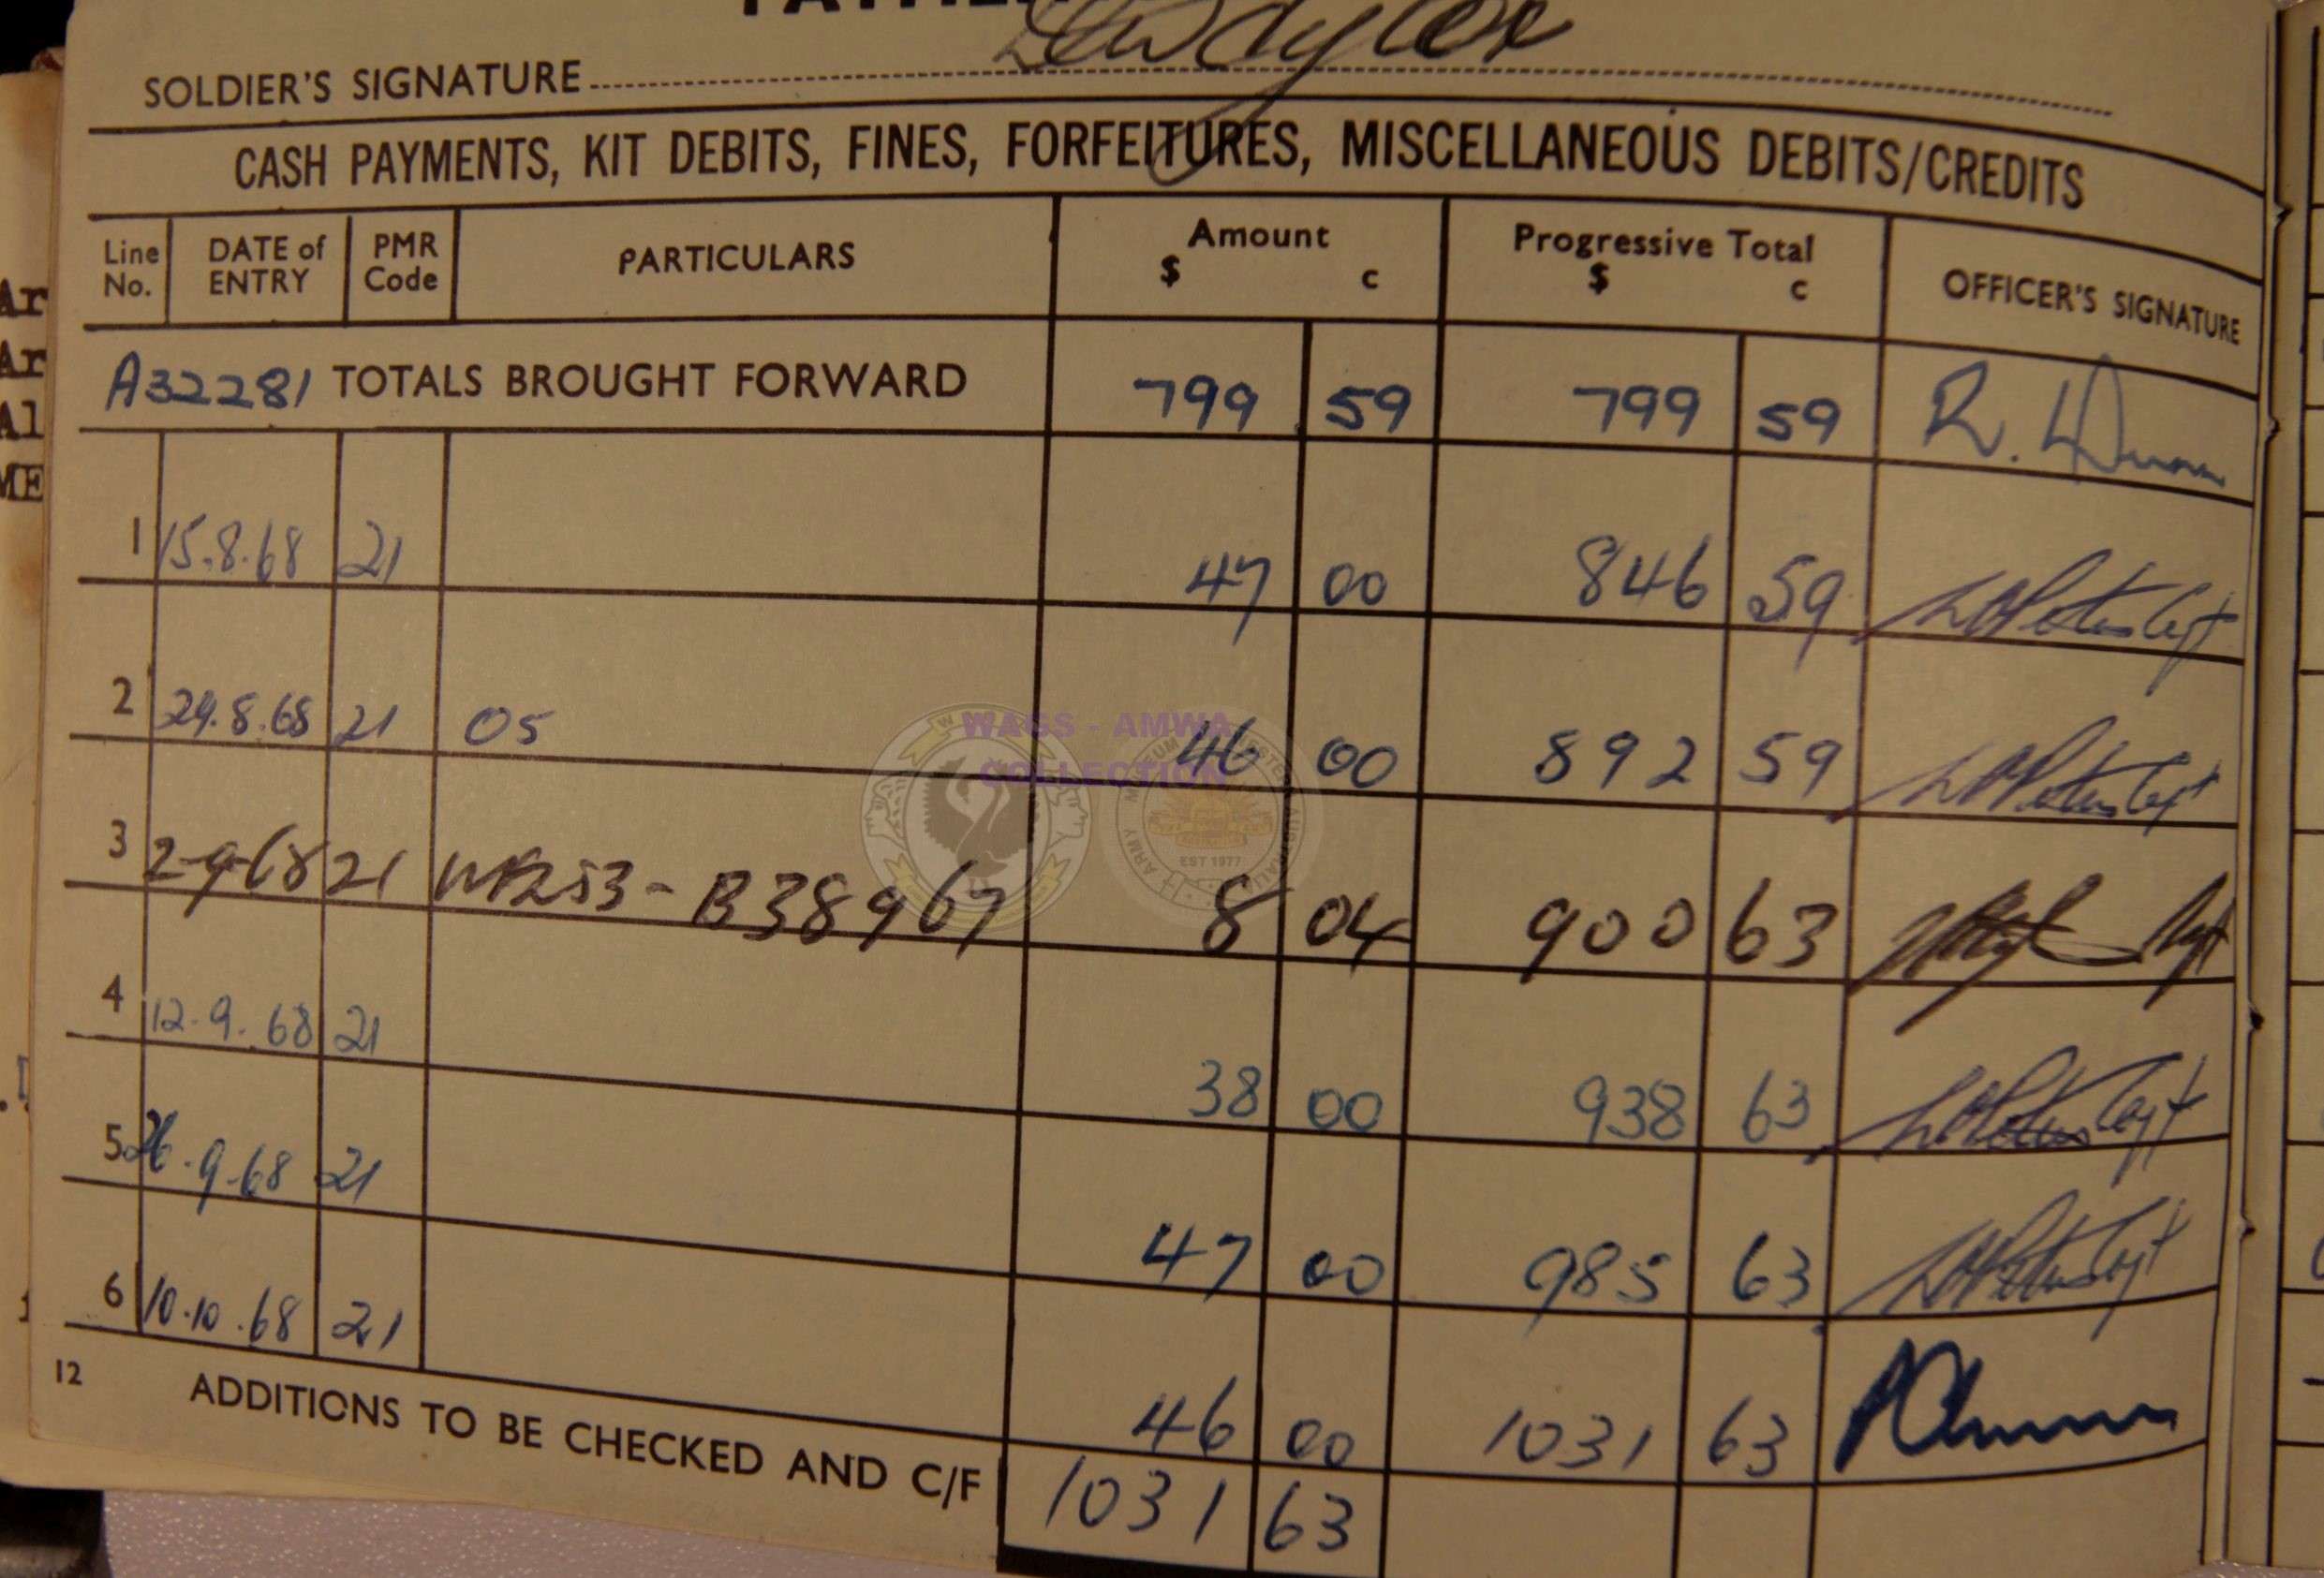 SOLDIER'S SIGNATURE
CASH PAYMENTS, KIT DEBITS, FINES, FORFEITURES, MISCELLANEOUS DEBITS/CREDITS
Line No. DATE of ENTRY PMR Code PARTICULARS Amount $ c Progressive Total $ c OFFICER'S SIGNATURE
A32281 TOTALS BROUGHT FORWARD 799 59 799 59
1 15.8.68 21 47 00 846 59
2 29.8.68 21 05 46 00 892 59
WAGS - AMWA
COLLECTION
EST 1977
3 2-9-68 21 B38967 8 04 900 63
4 12.9.68 21 38 00 938 63
5 26.9.68 21 47 00 985 63
6 10.10.68 21 46 00 1031 63
12 ADDITIONS TO BE CHECKED AND C/F 1031 63